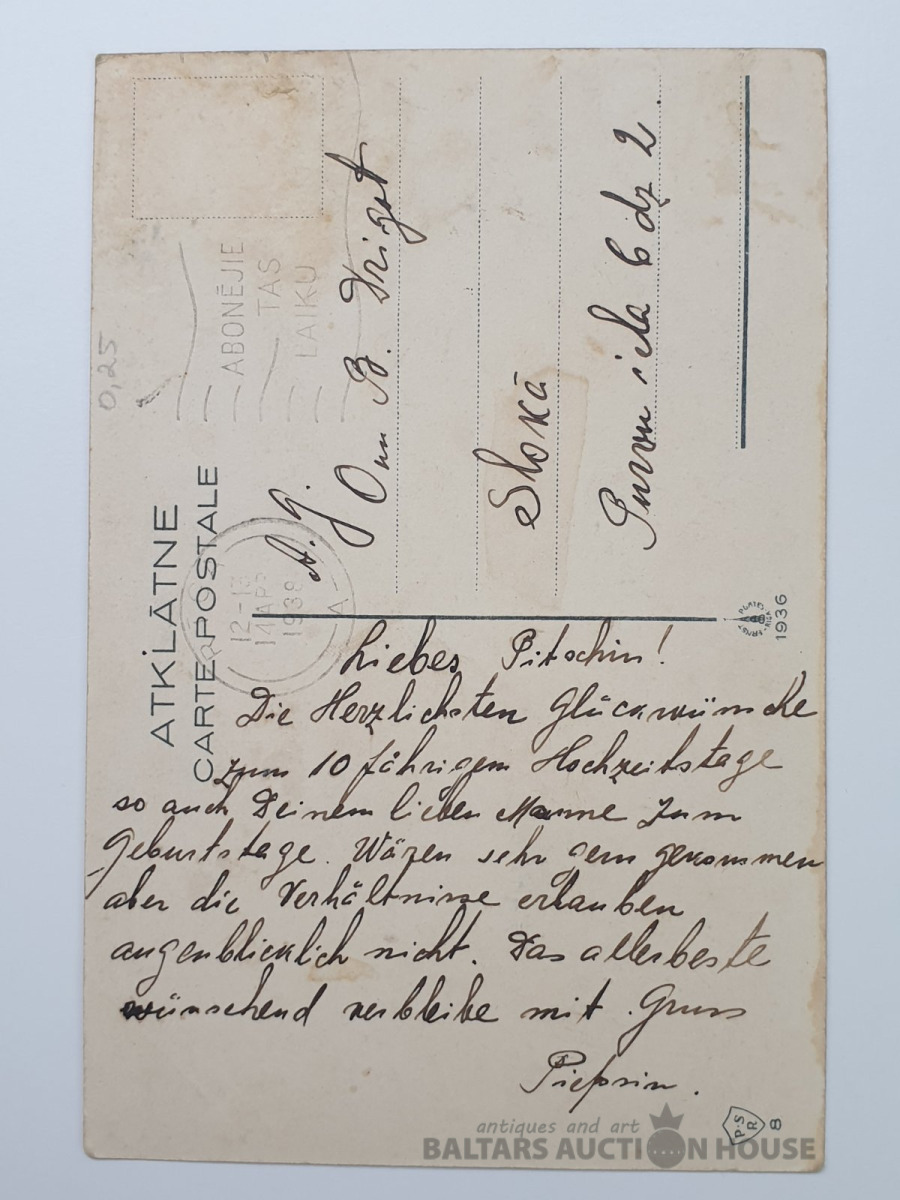 ATKLĀTNE
CARTE POSTALE
0,25
ABONĒJIE
TAS
LAIKU
12-13
14 APR
1938
A. g.
O un B. Drigot
Slokā
Purvu iela 6 dz 2.
ERNST PLATES RIGA
1936
Liebes Pitschin!
Die Herzlichsten Glückwünsche
zum 10 jährigem Hochzeitstage
so auch Deinem lieben Manne zum
Geburtstage. Wären sehr gern gekommen
aber die Verhältnisse erlauben
augenblicklich nicht. Das allerbeste
wünschend verbleibe mit Gruss
Piepsin.
P.S
R
8
antiques and art
BALTARS AUCTION HOUSE